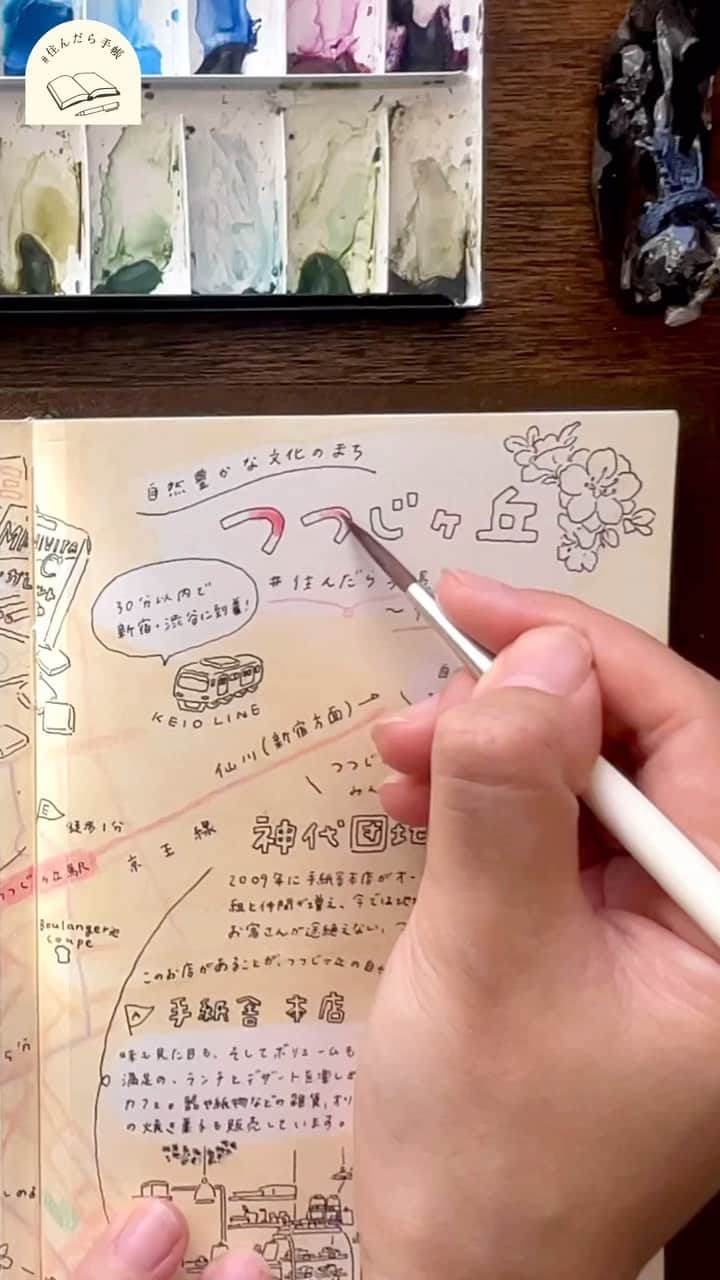 #住んだら手帳
自然豊かな文化のまち
つつじヶ丘
#住んだら手帳
30分以内で
新宿・渋谷に到着!
KEIO LINE
仙川(新宿方面)→
つつじ
みん
E
徒歩1分
京王線
つつじヶ丘駅
神代団地
Boulangerie
Coupe
2009年に手紙舎本店がオー
お客さんが途絶えない、
このお店があることが、つつじヶ丘の
A
手紙舎 本店
味も見た目も、そしてボリュームも
満足の、ランチとデザートを楽しめ
カフェ。器や紙物などの雑貨、オリ
の焼き菓子も販売しています。